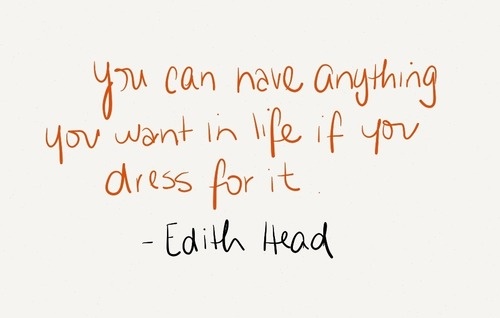 you can have anything
you want in life if you
dress for it.
- Edith Head